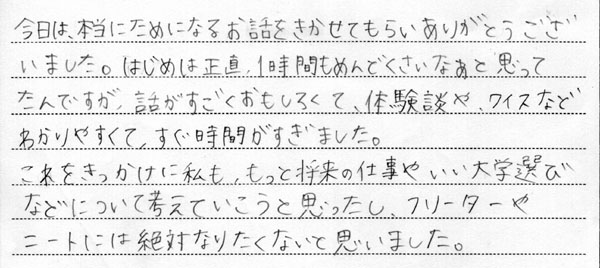 今日は、本当にためになるお話をきかせてもらいありがとうござ
いました。はじめは正直、1時間もめんどくさいなぁと思って
たんですが、話がすごくおもしろくて、体験談や、クイズなど
わかりやすくて、すぐ時間がすぎました。
これをきっかけに私も、もっと将来の仕事やいい大学選び
などについて考えていこうと思ったし、フリーターや
ニートには絶対なりたくないと思いました。